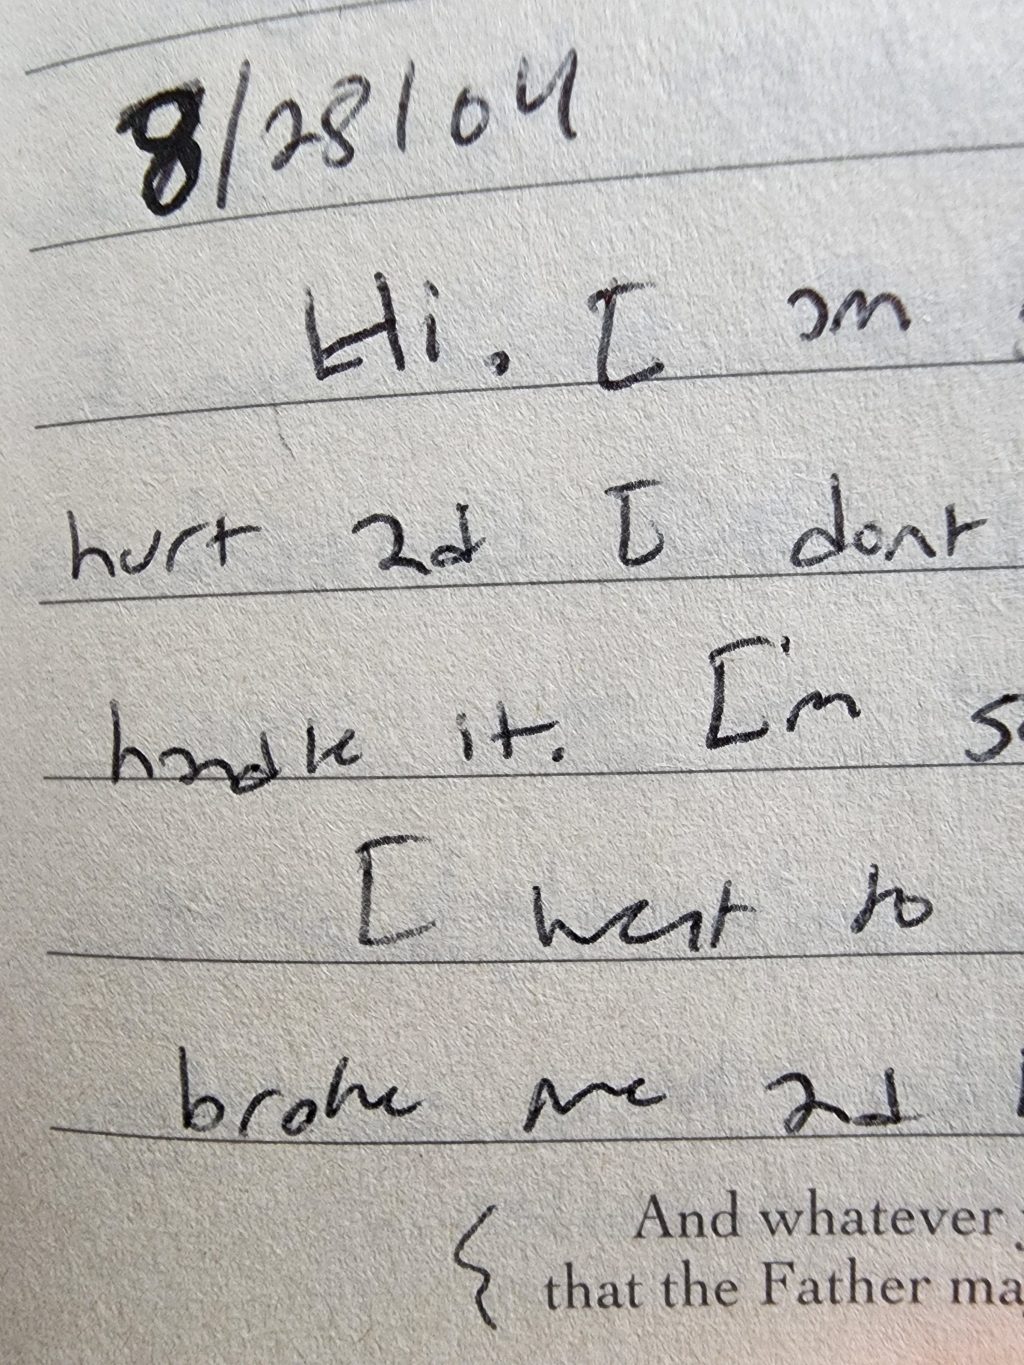 8/28/04
Hi. I am
hurt and I dont
handle it. I'm
I want to
broke me and
And whatever
that the Father ma